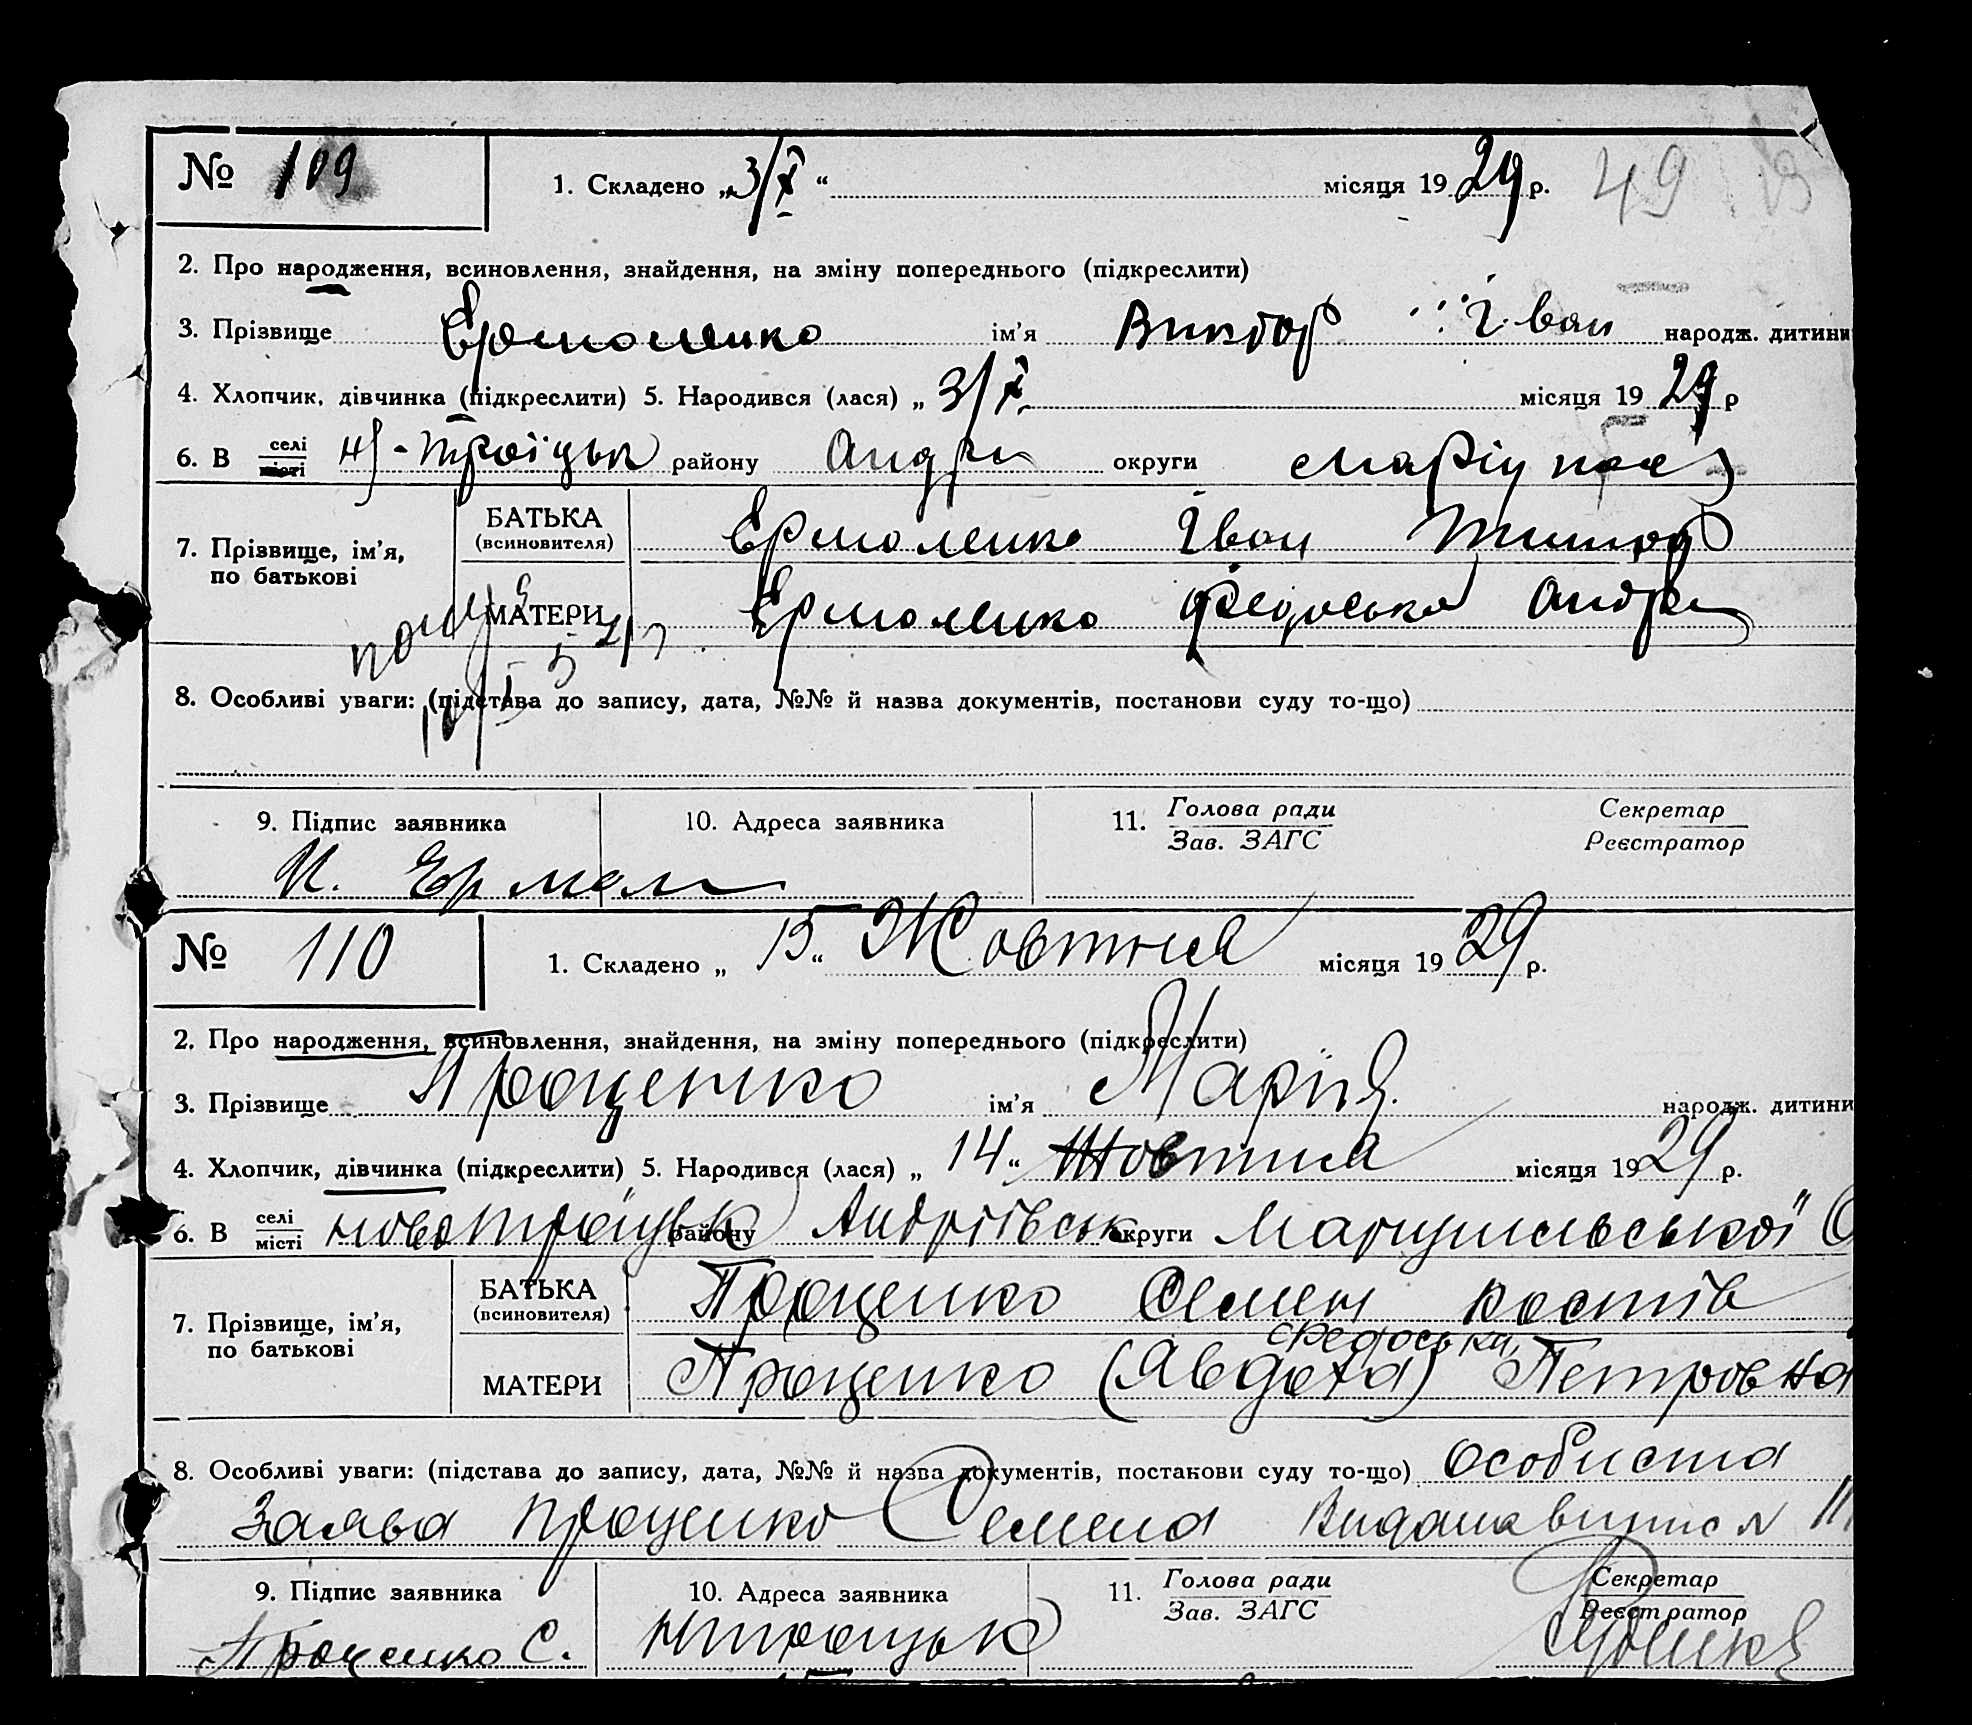 № 109
1. Складено „3/X“ місяця 1929 р. 49
2. Про народження, всиновлення, знайдення, на зміну попереднього (підкреслити)
3. Прізвище Ермоленко ім’я Виктор Іван народж. дитини
4. Хлопчик, дівчинка (підкреслити) 5. Народився (лася) „ 3/X місяця 1929 р
6. В селі місті Н-Троїцьк району Андри округи Маріупол
7. Прізвище, ім’я, по батькові
БАТЬКА (всиновителя) Ермоленко Іван Тимоф
МАТЕРИ Ермоленко Федоська Андр
8. Особливі уваги: (підстава до запису, дата, №№ й назва документів, постанови суду то-що)
9. Підпис заявника 10. Адреса заявника 11. Голова ради Зав. ЗАГС Секретар Реєстратор
И. Ермол
№ 110
1. Складено „ 15 “ Жовтня місяця 1929 р.
2. Про народження, всиновлення, знайдення, на зміну попереднього (підкреслити)
3. Прізвище Проценко ім’я Марія. народж. дитини
4. Хлопчик, дівчинка (підкреслити) 5. Народився (лася) „ 14 “ Жовтня місяця 1929 р.
6. В селі місті Новотроїцьк району Андріївськ округи Маріупільської О
7. Прізвище, ім’я, по батькові
БАТЬКА (всиновителя) Проценко Семен Костів
Федоська
МАТЕРИ Проценко (Явдоха) Петровна
8. Особливі уваги: (підстава до запису, дата, №№ й назва документів, постанови суду то-що) Особиста
Заява Проценко Семена Видана випис N 111
9. Підпис заявника 10. Адреса заявника 11. Голова ради Зав. ЗАГС Секретар Реєстратор
Проценко С. Нтроицьк